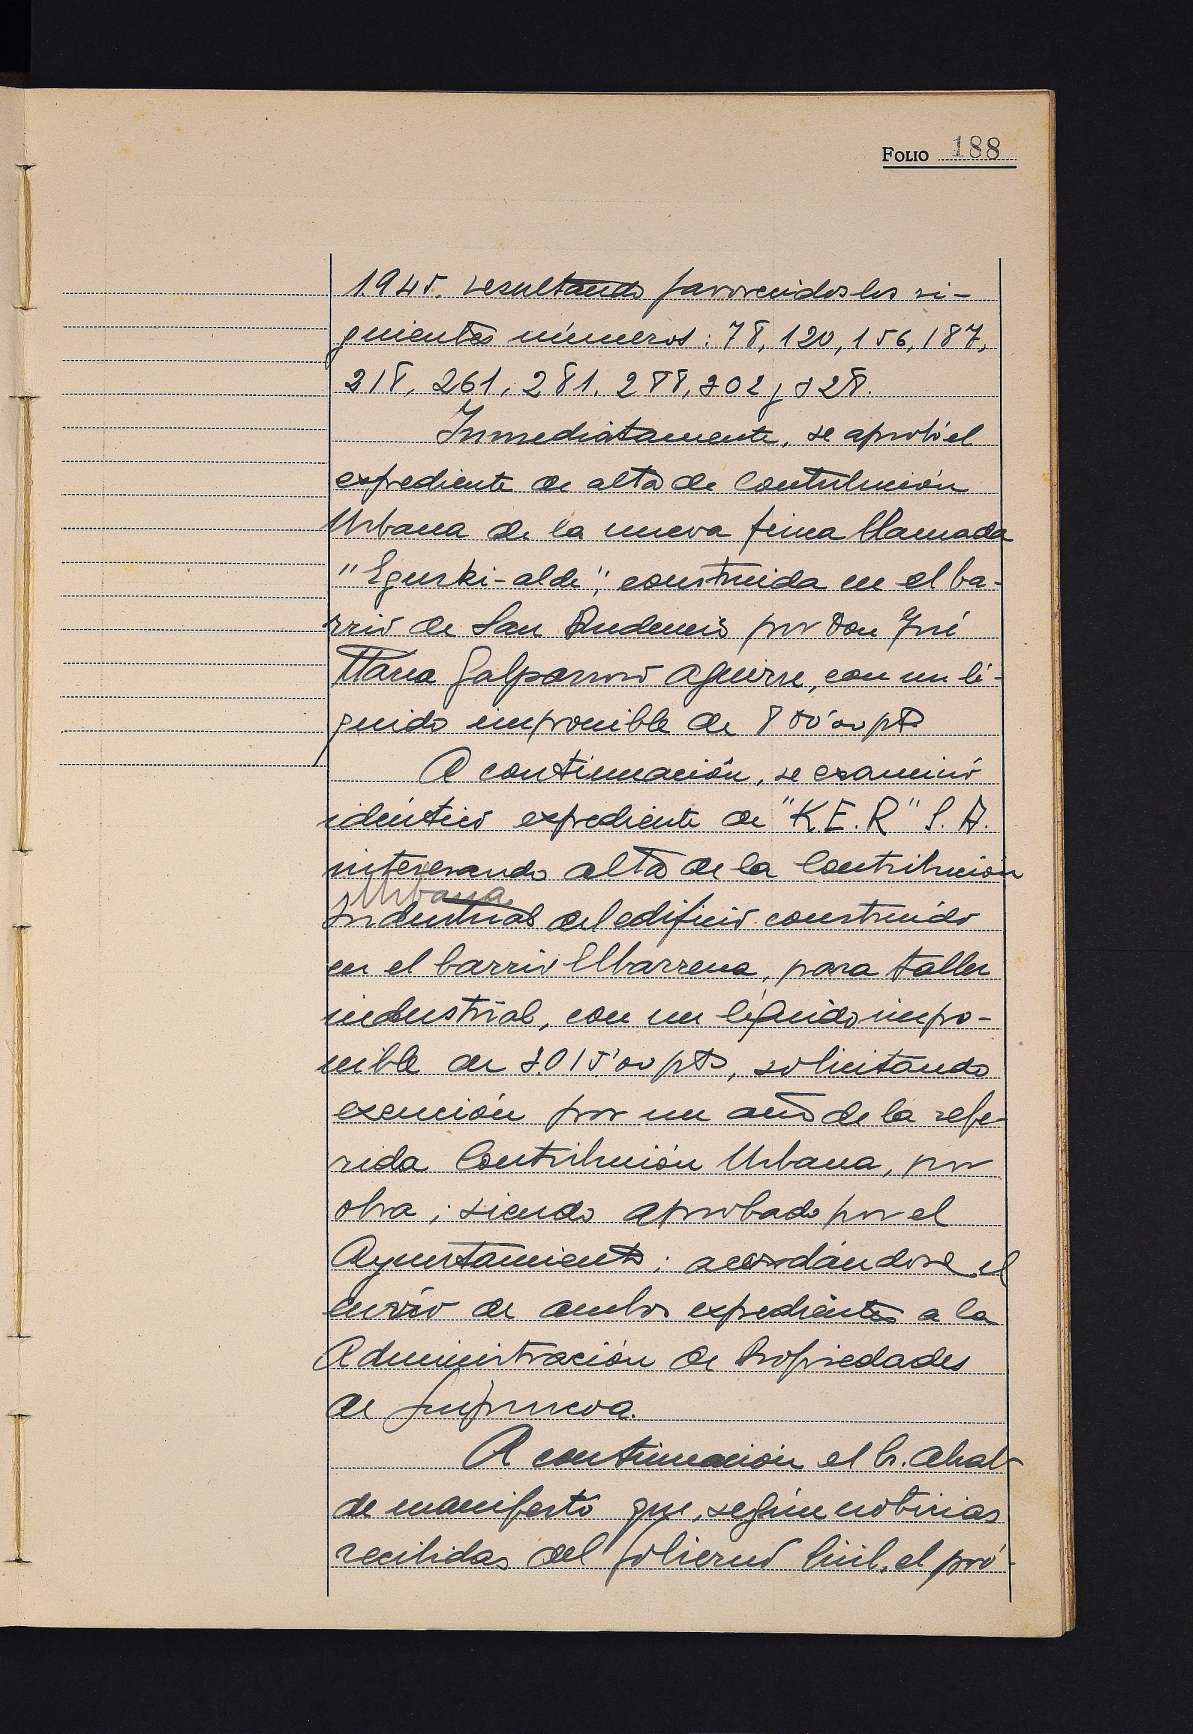 FOLIO 188
1.945. resultando favorecidos los si-
guientes números: 78, 120, 156, 187,
218, 261, 281, 288, 302 y 328.
Inmediatamente, se aprobó el
expediente de alta de Contribución
Urbana de la nueva finca llamada
"Eguski-alde", construida en el ba-
rrio de San Prudencio por Don José
María Galparsoro Aguirre, con un lí-
quido imponible de 800'00 pts
A continuación, se examinó
idéntico expediente de "K.E.R" S.A.
interesando alta de la Contribución
Urbana
Industrial del edificio construido
en el barrio Ubarrena, para taller
industrial, con un líquido impo-
nible de 3.015'00 pts, solicitando
exención por un año de la refe-
rida Contribución Urbana, por
obra; siendo aprobado por el
Ayuntamiento; acordándose el
envío de ambos expedientes a la
Administración de Propiedades
de Guipuzcoa.
A continuación el Sr. Alcal-
de manifestó que, según noticias
recibidas del Gobierno Civil, el pró-